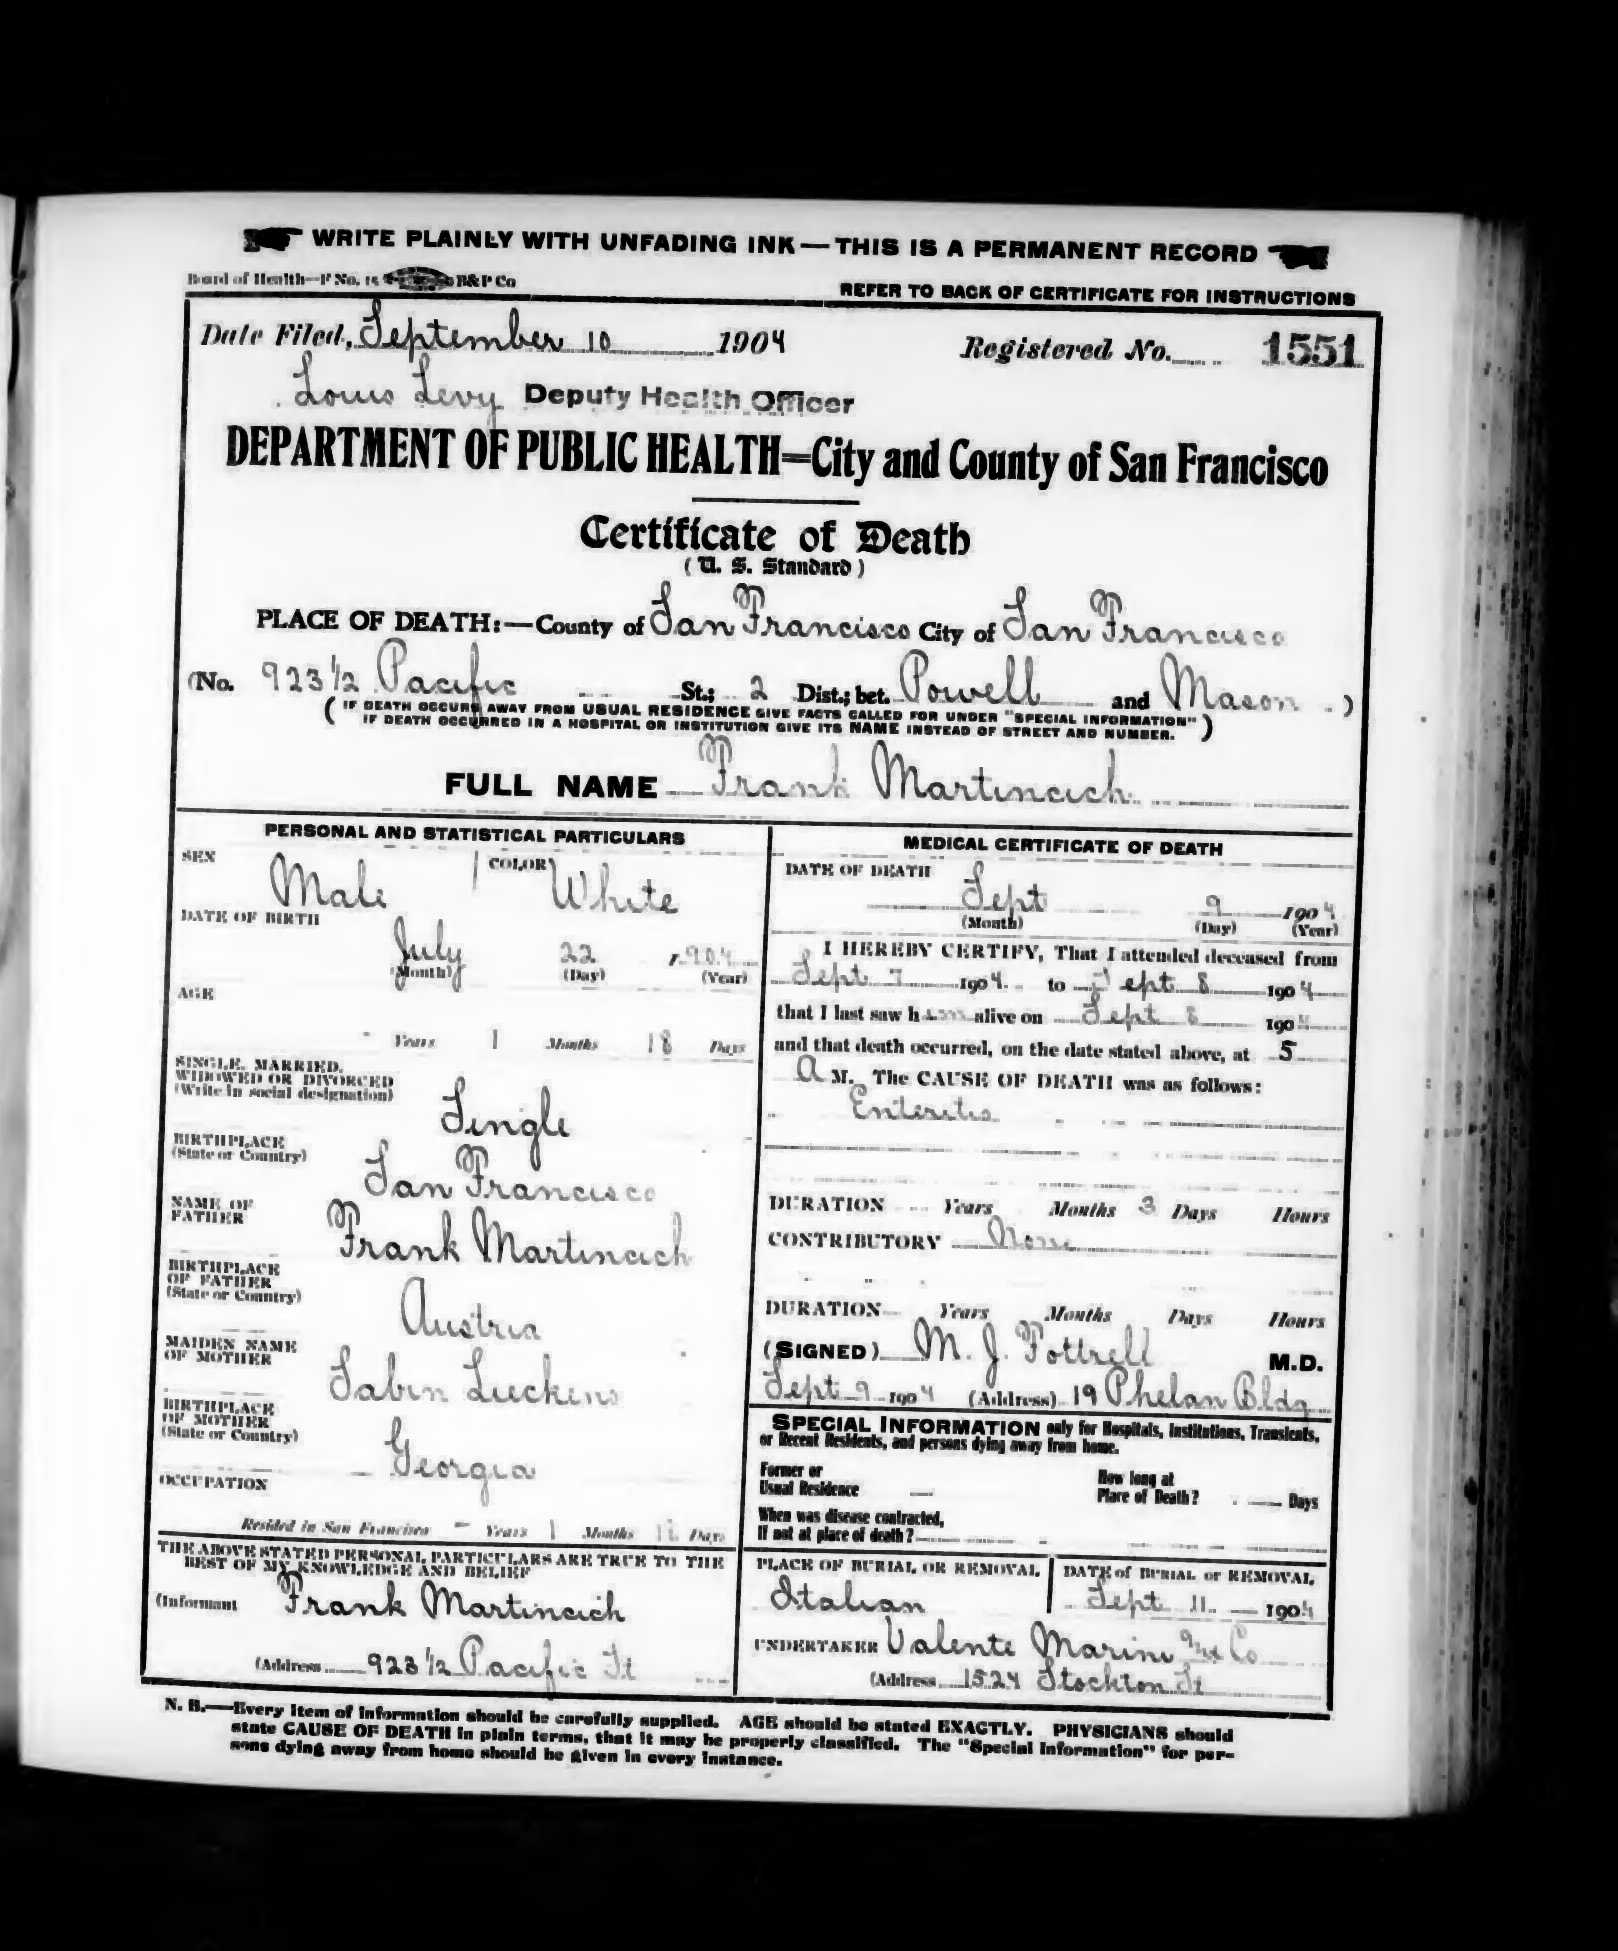 WRITE PLAINLY WITH UNFADING INK — THIS IS A PERMANENT RECORD
Board of Health—F No. 15 B&P Co
REFER TO BACK OF CERTIFICATE FOR INSTRUCTIONS
Date Filed, September 10 1904 Registered No. 1551
Louis Levy Deputy Health Officer
DEPARTMENT OF PUBLIC HEALTH=City and County of San Francisco
Certificate of Death
(U. S. Standard)
PLACE OF DEATH:—County of San Francisco City of San Francisco
(No. 923 1/2 Pacific St.; 2 Dist.; bet. Powell and Mason)
(IF DEATH OCCURS AWAY FROM USUAL RESIDENCE GIVE FACTS CALLED FOR UNDER "SPECIAL INFORMATION"
IF DEATH OCCURRED IN A HOSPITAL OR INSTITUTION GIVE ITS NAME INSTEAD OF STREET AND NUMBER.)
FULL NAME Frank Martincich
PERSONAL AND STATISTICAL PARTICULARS
SEX Male COLOR White
DATE OF BIRTH
July 22 1904
(Month) (Day) (Year)
AGE
- Years 1 Months 18 Days
SINGLE, MARRIED,
WIDOWED OR DIVORCED
(Write in social designation)
Single
BIRTHPLACE
(State or Country)
San Francisco
NAME OF
FATHER
Frank Martincich
BIRTHPLACE
OF FATHER
(State or Country)
Austria
MAIDEN NAME
OF MOTHER
Sabin Luckens
BIRTHPLACE
OF MOTHER
(State or Country)
Georgia
OCCUPATION
Resided in San Francisco - Years 1 Months Days
THE ABOVE STATED PERSONAL PARTICULARS ARE TRUE TO THE
BEST OF MY KNOWLEDGE AND BELIEF
(Informant Frank Martincich
(Address 923 1/2 Pacific St
MEDICAL CERTIFICATE OF DEATH
DATE OF DEATH
Sept 9 1904
(Month) (Day) (Year)
I HEREBY CERTIFY, That I attended deceased from
Sept 7 1904 to Sept 8 1904
that I last saw him alive on Sept 8 1904
and that death occurred, on the date stated above, at 5
A M. The CAUSE OF DEATH was as follows:
Enteritis
DURATION Years Months 3 Days Hours
CONTRIBUTORY None
DURATION Years Months Days Hours
(SIGNED) M. J. Fottrell M.D.
Sept 9 1904 (Address) 19 Phelan Bldg
SPECIAL INFORMATION only for Hospitals, Institutions, Transients,
or Recent Residents, and persons dying away from home.
Former or
Usual Residence
How long at
Place of Death? Days
When was disease contracted,
If not at place of death?
PLACE OF BURIAL OR REMOVAL
Italian
DATE of BURIAL or REMOVAL
Sept 11 1904
UNDERTAKER Valente Marini & Co
(Address 1524 Stockton St
N. B.—Every item of information should be carefully supplied. AGE should be stated EXACTLY. PHYSICIANS should
state CAUSE OF DEATH in plain terms, that it may be properly classified. The "Special Information" for per-
sons dying away from home should be given in every instance.